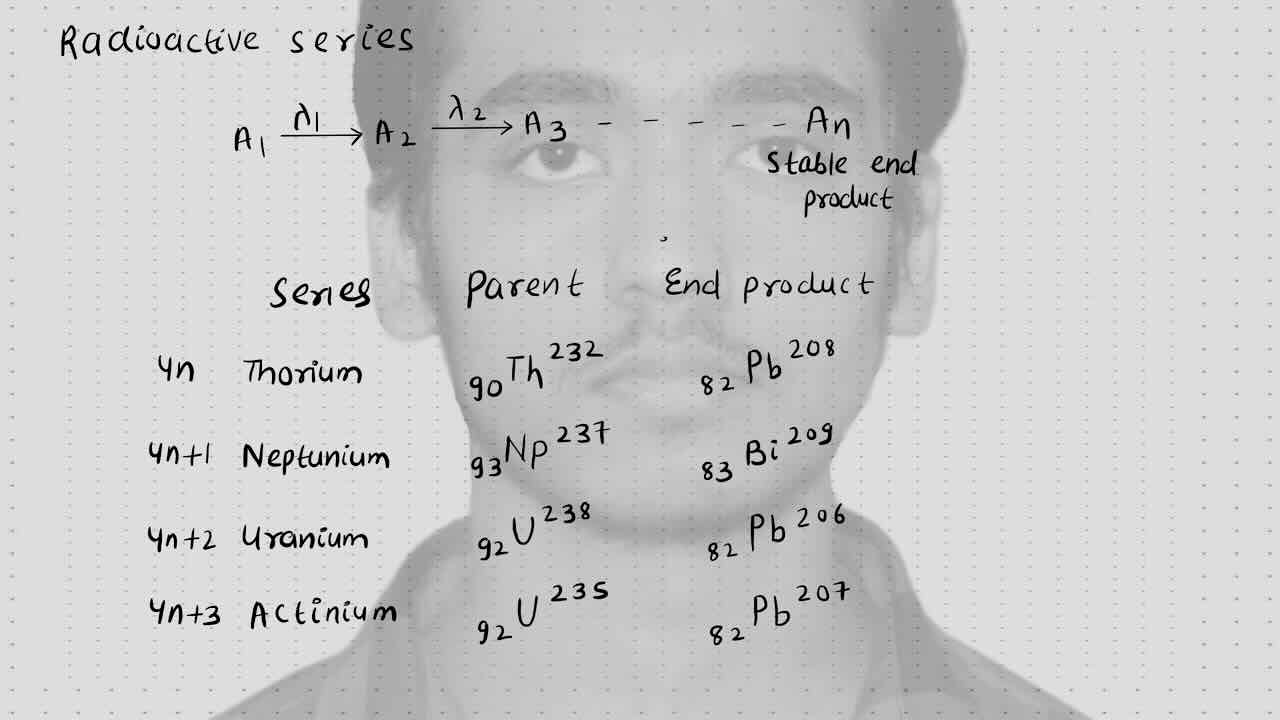 Radioactive series
A₁ —λ₁→ A₂ —λ₂→ A₃ - - - - - An
Stable end
product
Series Parent End product
4n Thorium ₉₀Th²³² ₈₂Pb²⁰⁸
4n+1 Neptunium ₉₃Np²³⁷ ₈₃Bi²⁰⁹
4n+2 Uranium ₉₂U²³⁸ ₈₂Pb²⁰⁶
4n+3 Actinium ₉₂U²³⁵ ₈₂Pb²⁰⁷